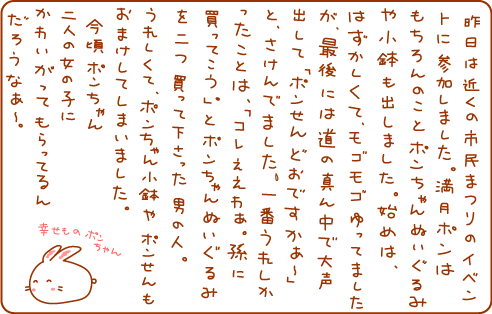 昨日は近くの市民まつりのイベン
トに参加しました。満月ポンは
もちろんのことポンちゃんぬいぐるみ
や小鉢も出しました。始めは、
はずかしくて、モゴモゴゆってました
が、最後には道の真ん中で大声
出して、「ポンせんどおですかぁ〜」
と、さけんでました。一番うれしか
ったことは、「コレええわぁ。孫に
買ってこう」。とポンちゃんぬいぐるみ
を二つ買って下さった男の人。
うれしくて、ポンちゃん小鉢やポンせんも
おまけしてしまいました。
今頃ポンちゃん
二人の女の子に
かわいがってもらってるん
だろうなぁ〜。
幸せもの ポン
ちゃん